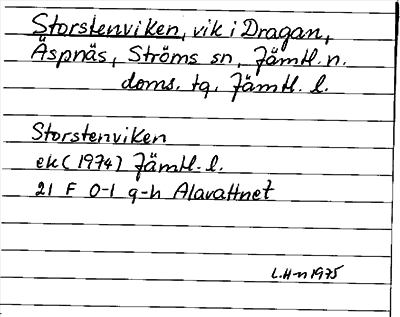 Storstenviken, vik i Dragan,
Äspnäs, Ströms sn, Jämtl. n.
doms. tg, Jämtl. l.
Storstenviken
ek (1974) Jämtl. l.
21 F 0-1 g-h Alavattnet
L.H-n 1975